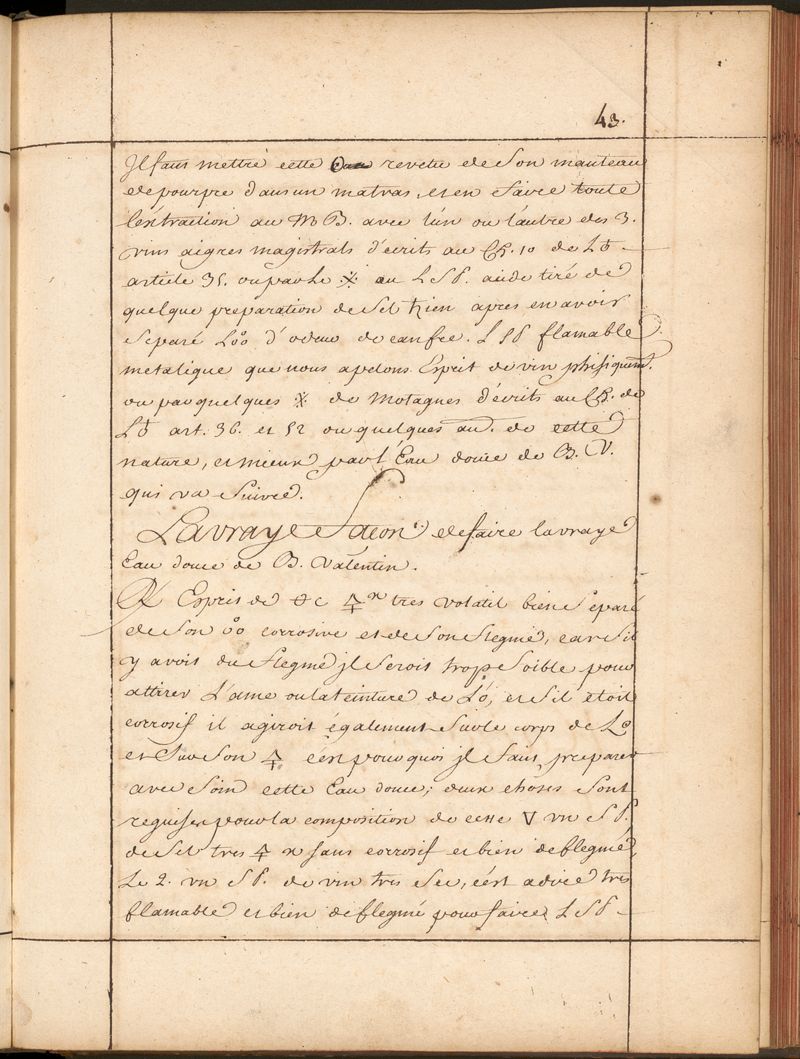 43.
Jl faut mettre cette revetu de son manteau
de pourpre dans un matras, et en faire toute
l'extraction au M B. avec l'un ou l'autre des 3.
vins aigres magistrals d'écrits au Ch. 10 de L♄
article 35. ou par Le ⁒ au L S P. acide tiré de
quelque preparation de Sel ♄ien apres en avoir
separé L'oo d'odeur de caufee. L S P flamable
metalique que nous apelons Esprit de vin phisiquemt.
ou par quelques ⁒ de Motagnes d'écrits au Ch. de
L♄ art. 36. et 52 ou quelques au. de cette
nature, et mieux par l'Eau douce de B. V.
qui va suivre.
La vraye facon de faire la vraye
Eau douce de B. Valentin.
℞ Esprit de 🜍 x tres volatil bien separé
de son oo corrosive et de son flegme, car s'il
y avoit du flegme jl seroit trop foible pour
attirer L'ame ou la teinture de L'o, et s'il etoit
corrosif il agiroit également sur le corps de L
et sur son 🜍 c'est pourquoi jl faut preparer
avec soin cette Eau douce; deux choses sont
requises pour la composition de cette ▽ vn S P.
de Sel tres 🜍 x sans corrosif et bien deflegmé,
Le 2. vn S P. de vin tres sec, c'est a dire tres
flamable et bien deflegmé pour faire L S P